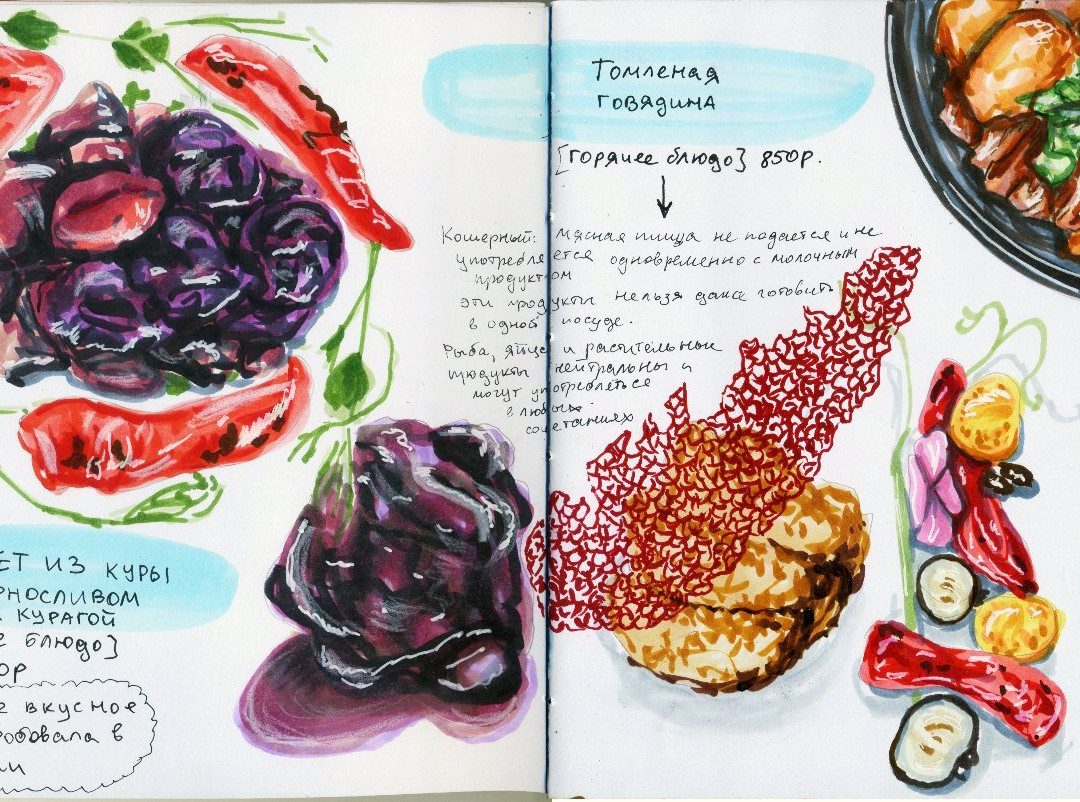 Томленая
говядина
[горячее блюдо] 850р.
Кошерный: мясная пища не подается и не
употребляется одновременно с молочным
продуктом
эти продукты нельзя даже готовить
в одной посуде.
Рыба, яйцо и растительные
продукты нейтральны и
могут употребляться
в любых
сочетаниях
ЕТ ИЗ КУРЫ
РНОСЛИВОМ
КУРАГОЙ
Е БЛЮДО]
0Р
е вкусное
робовала в
ли